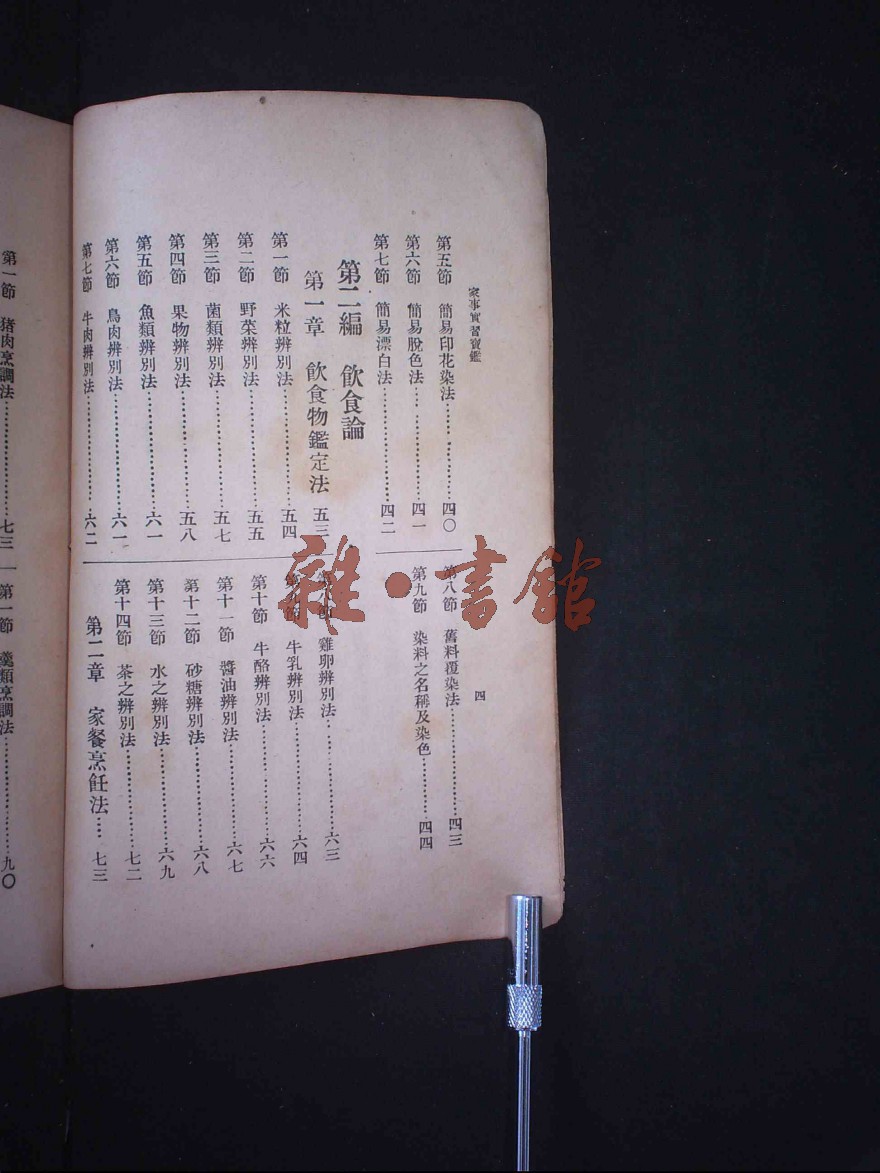 家事實習寶鑑
四
第五節 簡易印花染法…………四〇
第六節 簡易脫色法…………四一
第七節 簡易漂白法…………四二
第二編 飲食論
第一章 飲食物鑑定法 五三
第一節 米粒辨別法…………五四
第二節 野菜辨別法…………五五
第三節 菌類辨別法…………五七
第四節 果物辨別法…………五八
第五節 魚類辨別法…………六一
第六節 鳥肉辨別法…………六一
第七節 牛肉辨別法…………六二
第八節 舊料覆染法…………四三
第九節 染料之名稱及染色…………四四
雞卵辨別法…………六三
牛乳辨別法…………六四
第十節 牛酪辨別法…………六六
第十一節 醬油辨別法…………六七
第十二節 砂糖辨別法…………六八
第十三節 水之辨別法…………六九
第十四節 茶之辨別法…………七二
第二章 家餐烹飪法…七三
第一節 猪肉烹調法…………七三
第一節 羹類烹調法…………九〇
雜·書館